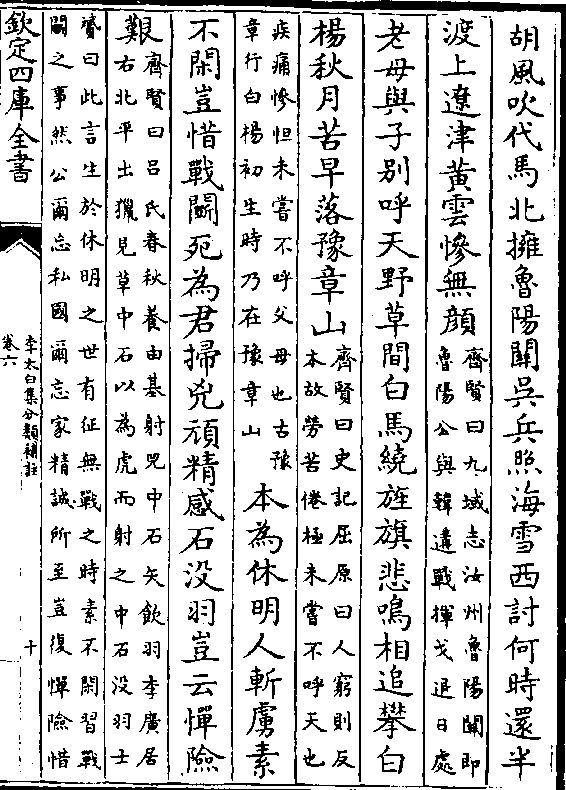 胡風吹代馬北擁魯陽關吳兵照海雪西討何時還半
渡上遼津黃雲慘無顔齊賢曰九域志汝州魯陽關即
魯陽公與韓遘戰揮戈退日處
老母與子别呼天野草間白馬繞旌旗悲鳴相追攀白
楊秋月苦早落豫章山齊賢曰史記屈原曰人窮則反
本故勞苦倦極未嘗不呼天也
疾痛慘怛未嘗不呼父母也古豫
章行白楊初生時乃在豫章山
本為休明人斬虜素
不閑豈惜戰鬭死為君掃兇頑精感石没羽豈云憚險
艱齊賢曰吕氏春秋養由基射兕中石矢飲羽李廣居
右北平出獵見草中石以為虎而射之中石没羽士
贇曰此言生於休明之世有征無戰之時素不閑習戰
鬭之事然公爾忘私國爾忘家精誠所至豈復憚險惜
欽定四庫全書
李太白集分類補註
卷六
十